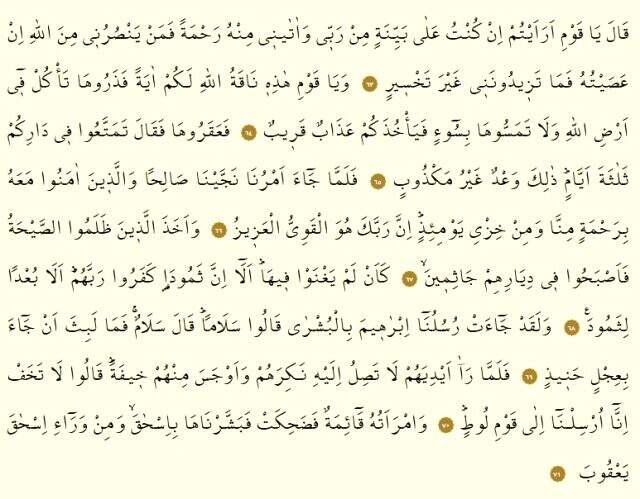 قَالَ يَا قَوْمِ اَرَاَيْتُمْ اِنْ كُنْتُ عَلٰى بَيِّنَةٍ مِنْ رَبّ۪ى وَاٰتٰين۪ى مِنْهُ رَحْمَةً فَمَنْ يَنْصُرُن۪ى مِنَ اللّٰهِ اِنْ
عَصَيْتُهُ فَمَا تَز۪يدُونَن۪ى غَيْرَ تَخْس۪يرٍ ﴿٦٣﴾ وَيَا قَوْمِ هٰذِه۪ نَاقَةُ اللّٰهِ لَكُمْ اٰيَةً فَذَرُوهَا تَأْكُلْ ف۪ٓى
اَرْضِ اللّٰهِ وَلَا تَمَسُّوهَا بِسُٓوءٍ فَيَأْخُذَكُمْ عَذَابٌ قَر۪يبٌ ﴿٦٤﴾ فَعَقَرُوهَا فَقَالَ تَمَتَّعُوا ف۪ى دَارِكُمْ
ثَلٰثَةَ اَيَّامٍۜ ذٰلِكَ وَعْدٌ غَيْرُ مَكْذُوبٍ ﴿٦٥﴾ فَلَمَّا جَٓاءَ اَمْرُنَا نَجَّيْنَا صَالِحًا وَالَّذ۪ينَ اٰمَنُوا مَعَهُ
بِرَحْمَةٍ مِنَّا وَمِنْ خِزْىِ يَوْمِئِذٍۜ اِنَّ رَبَّكَ هُوَ الْقَوِىُّ الْعَز۪يزُ ﴿٦٦﴾ وَاَخَذَ الَّذ۪ينَ ظَلَمُوا الصَّيْحَةُ
فَاَصْبَحُوا ف۪ى دِيَارِهِمْ جَاثِم۪ينَۙ ﴿٦٧﴾ كَاَنْ لَمْ يَغْنَوْا ف۪يهَاۜ اَلَٓا اِنَّ ثَمُودَا۬ كَفَرُوا رَبَّهُمْۜ اَلَا بُعْدًا
لِثَمُودَ۟ ﴿٦٨﴾ وَلَقَدْ جَٓاءَتْ رُسُلُنَٓا اِبْرٰه۪يمَ بِالْبُشْرٰى قَالُوا سَلَامًاۜ قَالَ سَلَامٌۚ فَمَا لَبِثَ اَنْ جَٓاءَ
بِعِجْلٍ حَن۪يذٍ ﴿٦٩﴾ فَلَمَّا رَآٰ اَيْدِيَهُمْ لَا تَصِلُ اِلَيْهِ نَكِرَهُمْ وَاَوْجَسَ مِنْهُمْ خ۪يفَةًۜ قَالُوا لَا تَخَفْ
اِنَّٓا اُرْسِلْنَٓا اِلٰى قَوْمِ لُوطٍۜ ﴿٧٠﴾ وَامْرَاَتُهُ قَٓائِمَةٌ فَضَحِكَتْ فَبَشَّرْنَاهَا بِاِسْحٰقَۙ وَمِنْ وَرَٓاءِ اِسْحٰقَ
يَعْقُوبَ ﴿٧١﴾